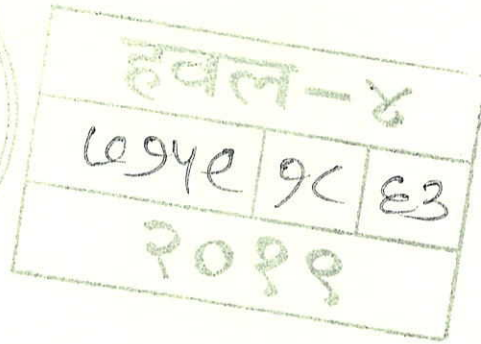 हवल-४
७१५९ १८ ६३
२०११